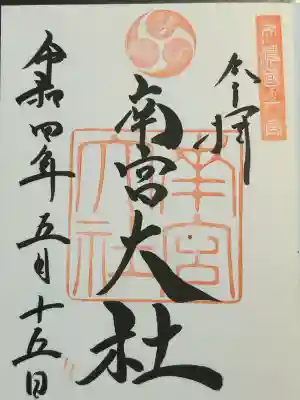 美濃國一宮
奉拝
南宮大社
南宮
大社
令和四年五月十五日